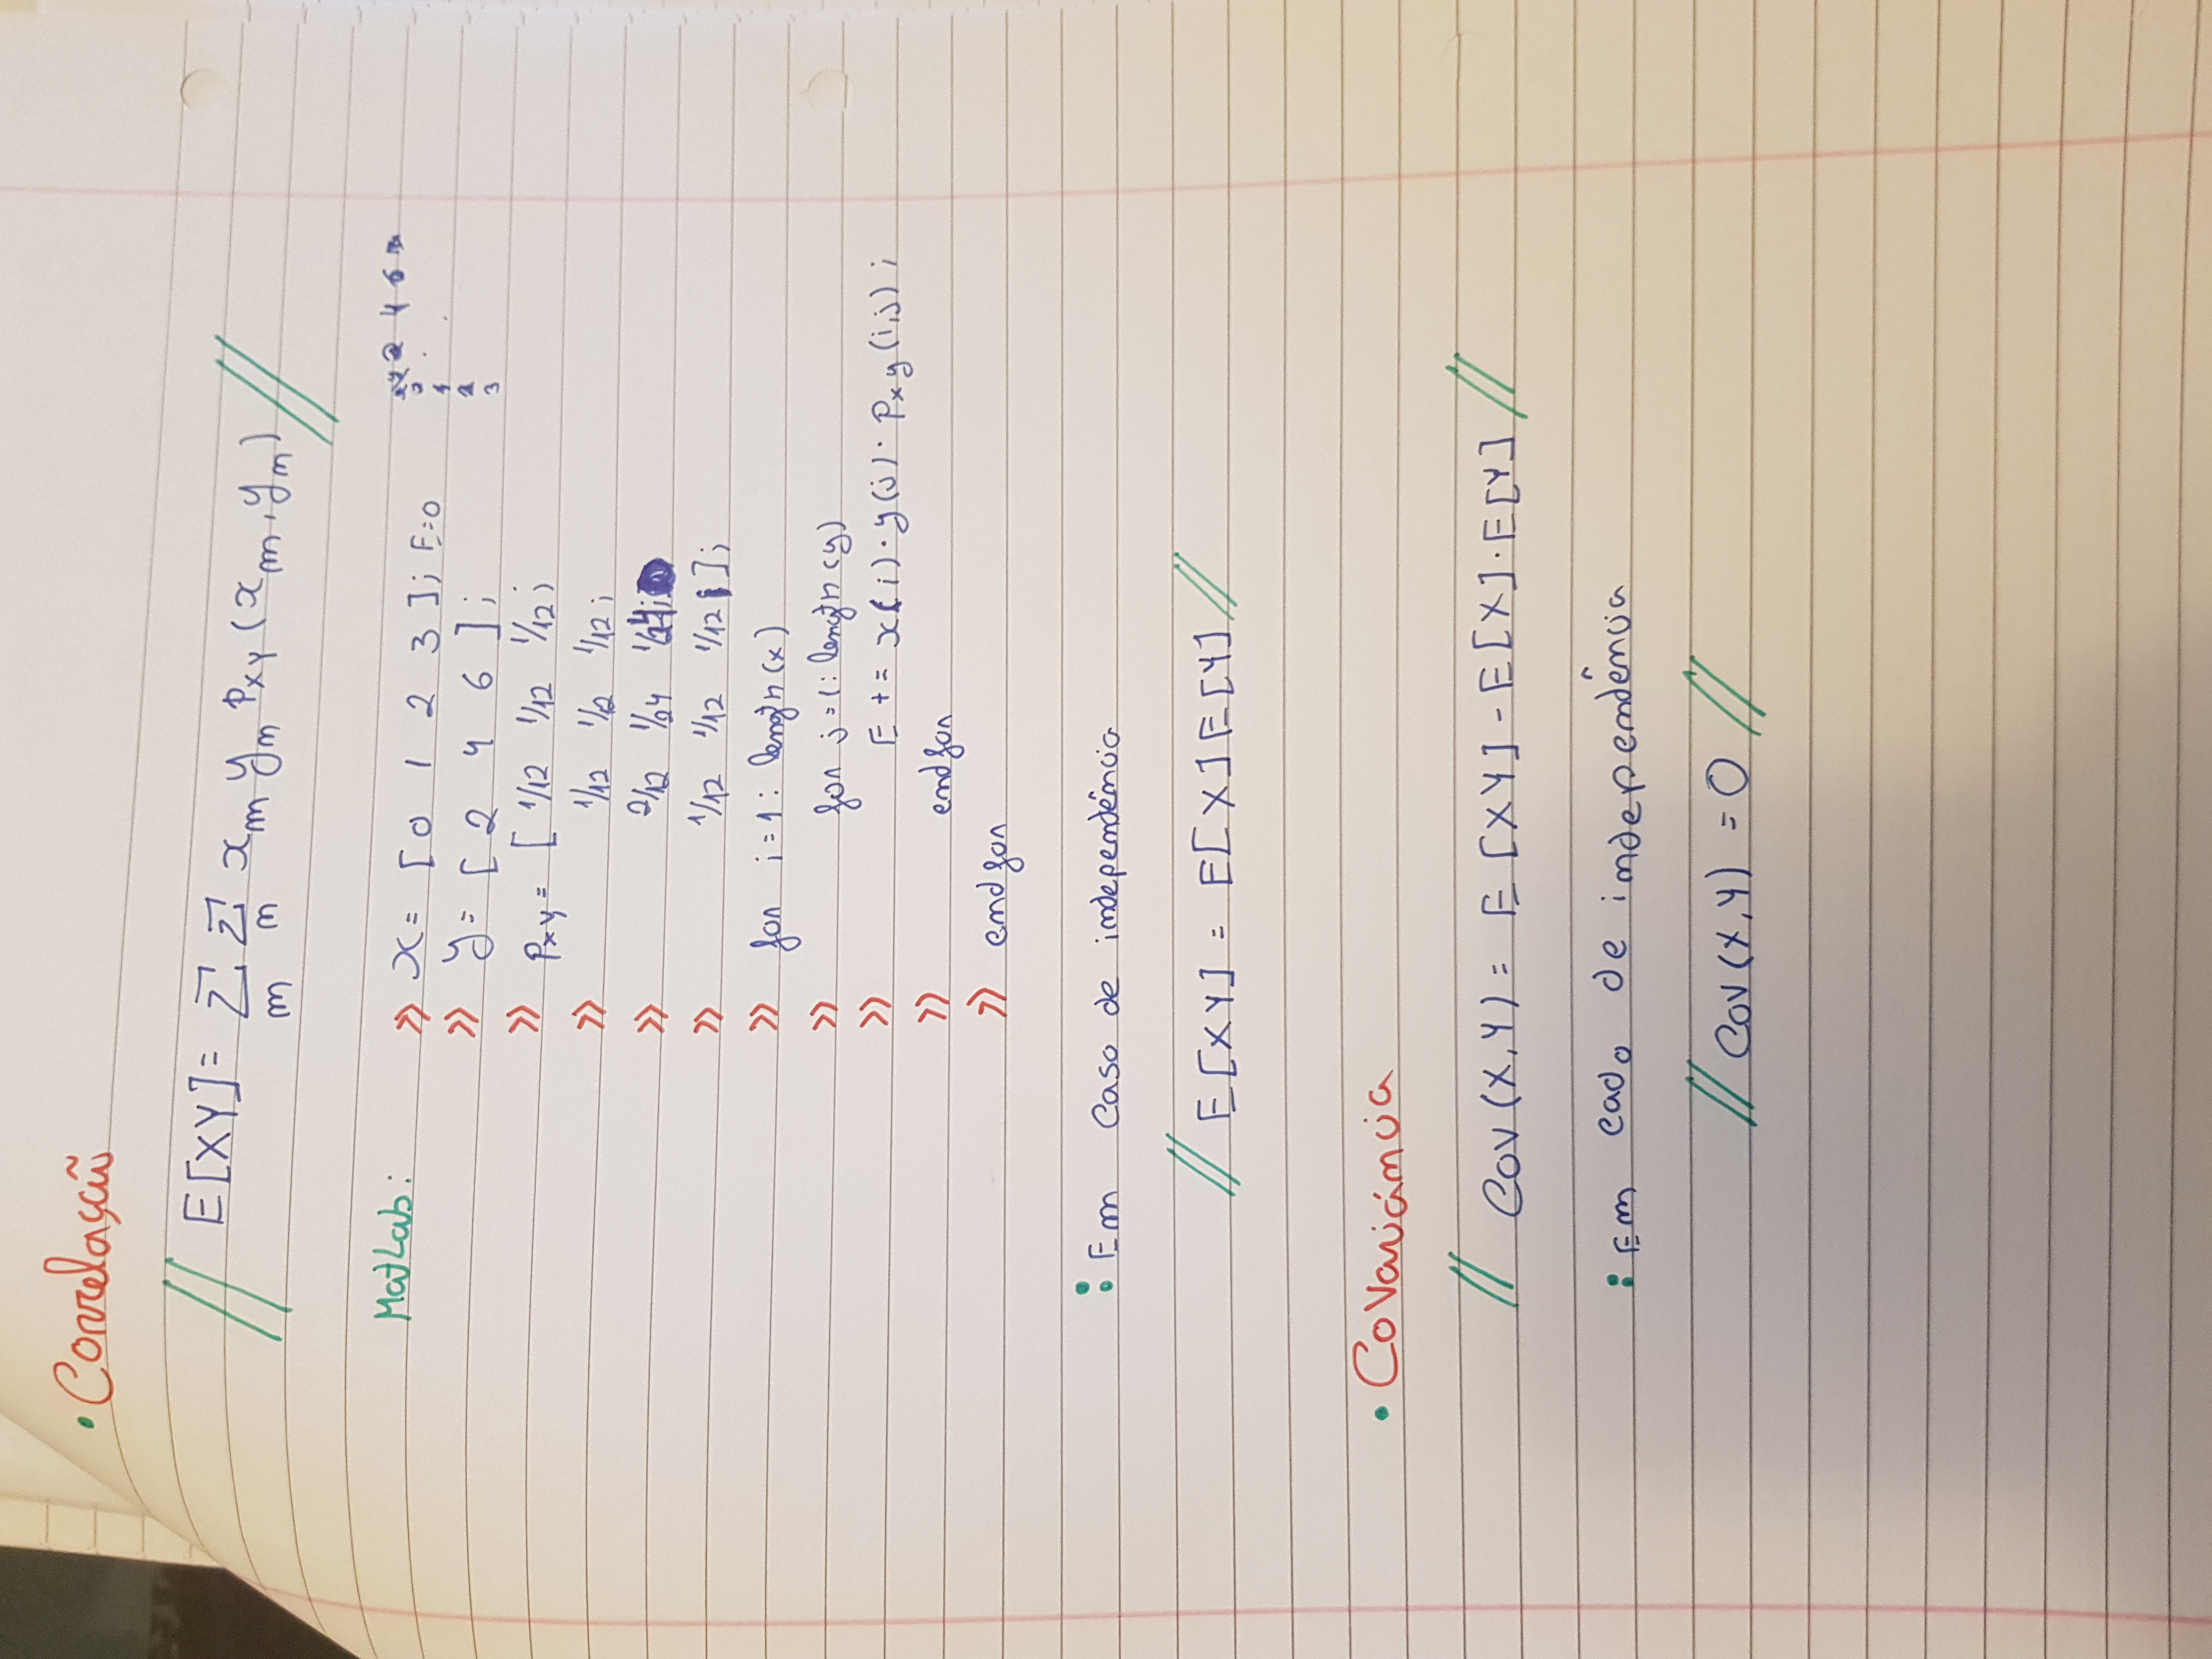 • Correlação
// E[XY] = Σ Σ xm yn PXY (xm, yn) //
m n
MatLab: >> x = [ 0 1 2 3 ]; E=0
2 4 6
0
1
2
3
>> y = [ 2 4 6 ];
>> Pxy = [ 1/12 1/12 1/12;
>> 1/12 1/12 1/12;
>> 2/12 1/24 1/24;
>> 1/12 1/12 1/12 ];
>> for i = 1 : length (x)
>> for j = 1 : length (y)
>> E += x(i) · y(j) · Pxy (i,j) ;
>> endfor
>> endfor
: Em caso de independência
// E[XY] = E[X] E[Y] //
• Covariância
// Cov (X,Y) = E [XY] - E[X] · E[Y] //
: Em cado de independência
// Cov (X,Y) = 0 //